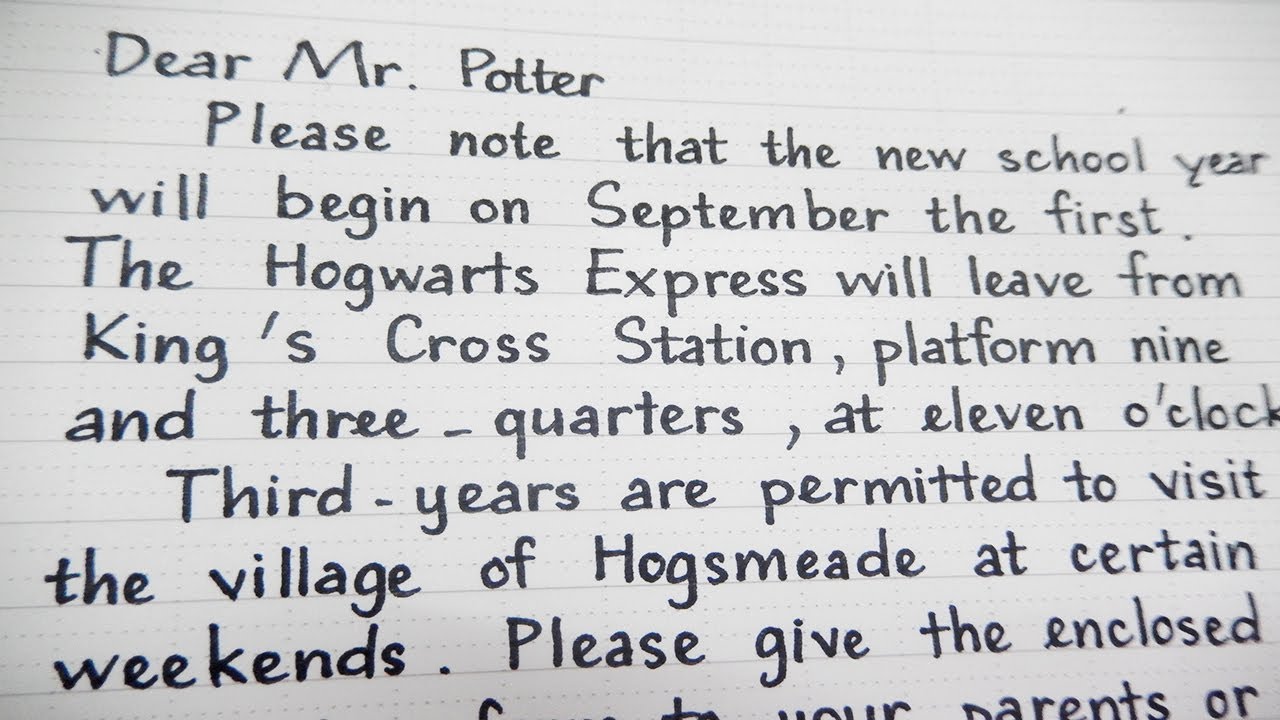 Dear Mr. Potter
Please note that the new school year
will begin on September the first.
The Hogwarts Express will leave from
King's Cross Station, platform nine
and three-quarters, at eleven o'clock
Third-years are permitted to visit
the village of Hogsmeade at certain
weekends. Please give the enclosed
form to your parents or